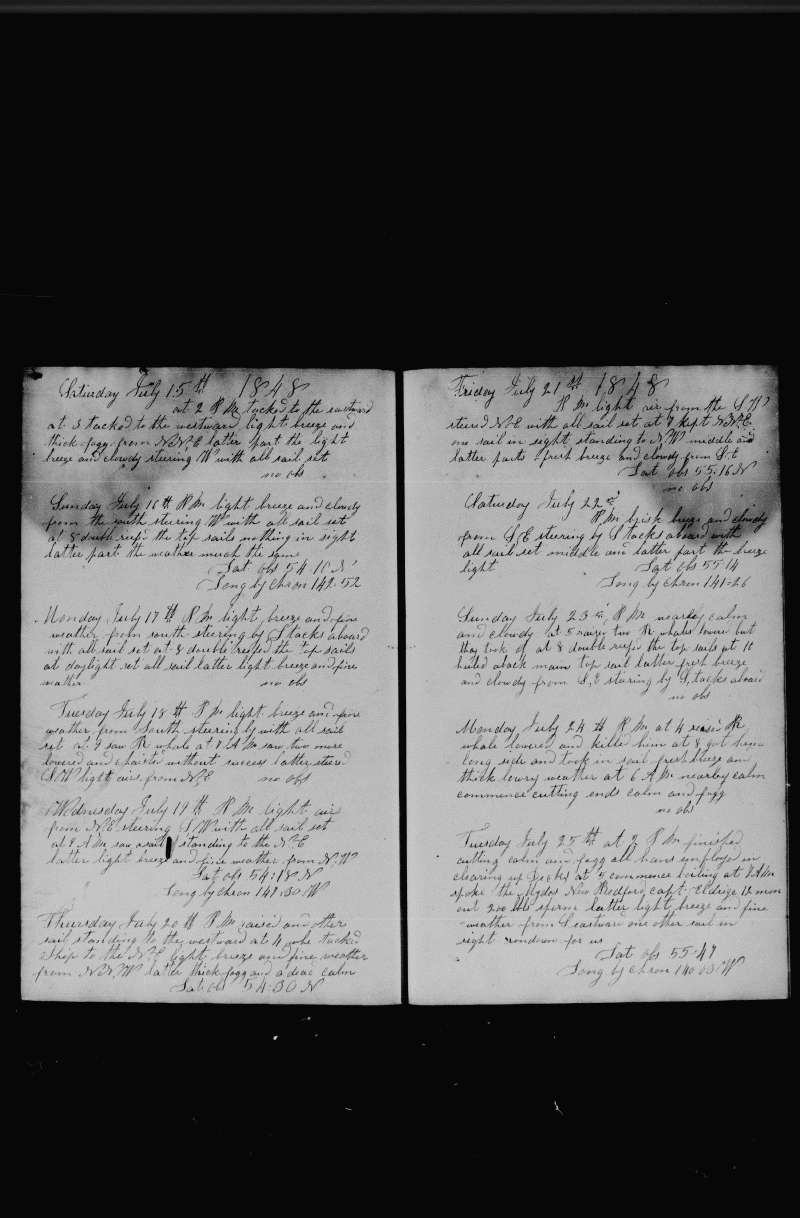 Saturday July 15th 1848
at 2 P M tacked to the eastward
at 3 tacked to the westward light breeze and
thick fogg from N.N.E latter part the light
breeze and clowdy steering W with all sail set
no obs
Sunday July 16th P M light breeze and clowdy
from the south steering W with all sail set
at 8 double reefd the top sails nothing in sight
latter part the weather much the same
Lat obs 54.10 N
Long by chron 142.52
Monday July 17th P M light breeze and fine
weather from south steering by S tacks aboard
with all sail set at 8 double reefed the top sails
at daylight set all sail latter light breeze and fine
weather no obs
Tuesday July 18th P M light breeze and fine
weather from South steering by with all sail
set at 7 saw whale at 7 A M saw two more
lowered and chaised without success latter steerd
S W light airs from N.E no obs
Wednesday July 19th P M light airs
from N.E steering S W with all sail set
at 8 A M saw a sail standing to the N.E
latter light breeze and fine weather from N.W
Lat obs 54:18 N
Long by chron 142:30 W
Thursday July 20th P M raised and other
sail standing to the westward at 4 tacked
ship to the N.E light breeze and fine weather
from N.N.W latter thick fogg and a dead calm
Lat obs 54-30 N
Friday July 21st 1848
P M light air from the S W
steerd N.E with all sail set at 7 kept N.N.E.
one sail in sight standing to N.W middle and
latter parts fresh breeze and clowdy from S.E
Lat obs 55.16 N
no obs
Saturday July 22nd
P M brisk breeze and clowdy
from S.E steering by S tacks aboard with
all sail set middle and latter part the breeze
light Lat obs 55.14
Long by chron 141=26
Sunday July 23rd P M nearley calm
and clowdy at 5 raised two whales lowerd but
they took of at 8 double reefd the top sails at 10
hauled aback main top sail latter fresh breeze
and clowdy from S,E stearing by S, tacks aboard
no obs
Monday July 24th P M at 4 raised
whale lowered and killed him at 8 got him
long side and took in sail fresh breeze and
thick lowry weather at 6 A M nearley calm
commence cutting ends calm and fogg
no obs
Tuesday July 25th at 2 P M finished
cutting calm and fogg all hans employd in
clearing up Decks at 5 commence boiling at 7 A M
spoke the New Bedford, capt Eldrige 12 mon
out 200 bbl sperm latter light breeze and fine
weather from S eastward one other sail in
sight rondown for us
Lat obs 55-47
Long by chron 140 03 W